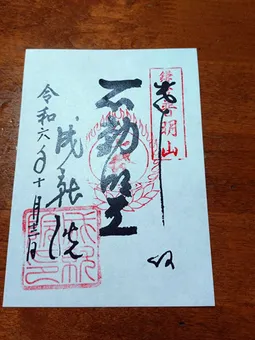 奉拝
不動明王
成就院
令和六年十月三日